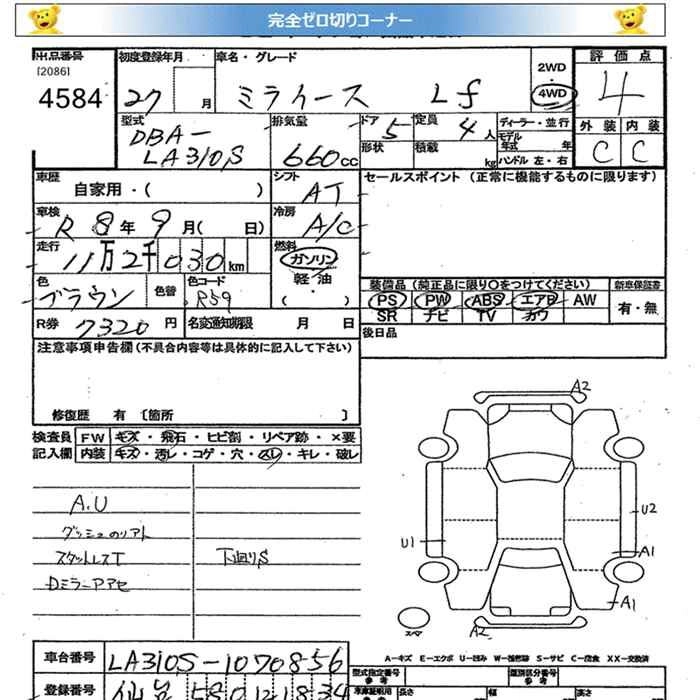 完全ゼロ切りコーナー
出品番号
[2086]
4584
初度登録年月
27 月
車名・グレード
ミライース Lf
2WD
4WD
評価点
4
外装 内装
C C
型式
DBA-
LA310S
排気量
660cc
ドア 5
形状
定員 4人
積載 kg
ディーラー・並行
モデル
年式 年
ハンドル 左・右
車歴
自家用・( )
シフト
AT
セールスポイント (正常に機能するものに限ります)
車検
R 8年 9月( 日)
冷房
A/C
走行
11万2千030km
燃料
ガソリン
軽・油
・( )
色
ブラウン
色替
色コード
R59
装備品 (純正品に限り〇をつけてください)
新車保証書
PS PW ABS エアB AW
SR ナビ TV カワ
有・無
R券 7320円
名変通知期限 月 日
後日品
注意事項申告欄 (不具合内容等は具体的に記入して下さい)
修復歴 有 [箇所 ]
検査員
記入欄
FW キズ・飛石・ヒビ割・リペア跡・×要
内装 キズ・汚レ・コゲ・穴・スレ・キレ・破レ
A.U
ダッシュのリアト
スタットレスT
Dミラーアアセ
下回りS
A2
U2
U1
A1
A1
A2
スペア
A-キズ E-エクボ U-凹み W-補修跡 S-サビ C-腐食 XX-交換済
車台番号
LA310S-1070856
登録番号
仙台 580 1218 34
型式指定番号
参考
類別区分番号
参考
長さ 幅 高さ